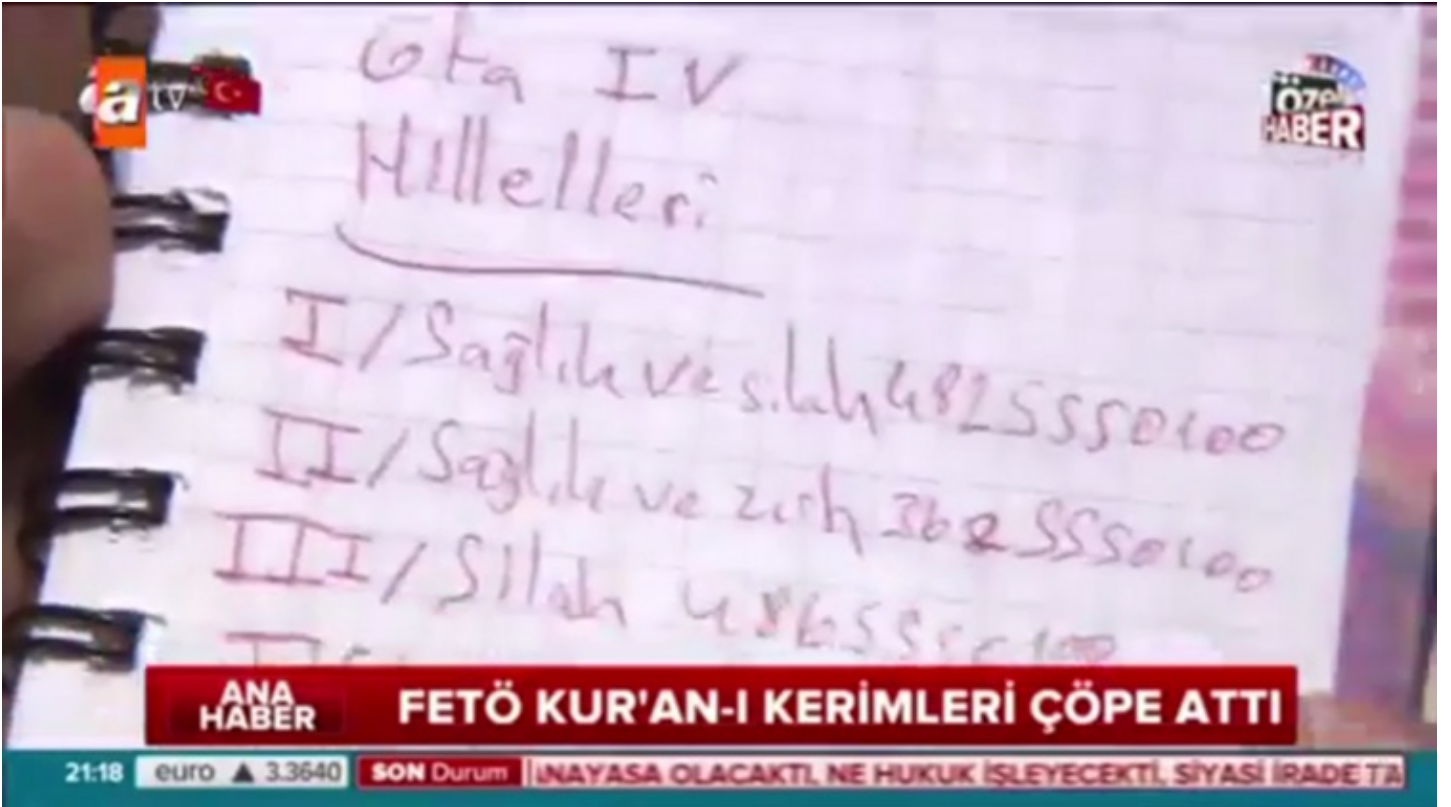 Gta IV
Hıllelleri
I/Sağlık ve silah 4825550100
II/Sağlık ve zırh 3625550100
III/Silah 486555 100
atv
ÖZEL
HABER
ANA
HABER
FETÖ KUR'AN-I KERİMLERİ ÇÖPE ATTI
21:18 euro ▲ 3.3640 SON Durum ANAYASA OLACAKTI, NE HUKUK İŞLEYECEKTİ, SİYASİ İRADE TA